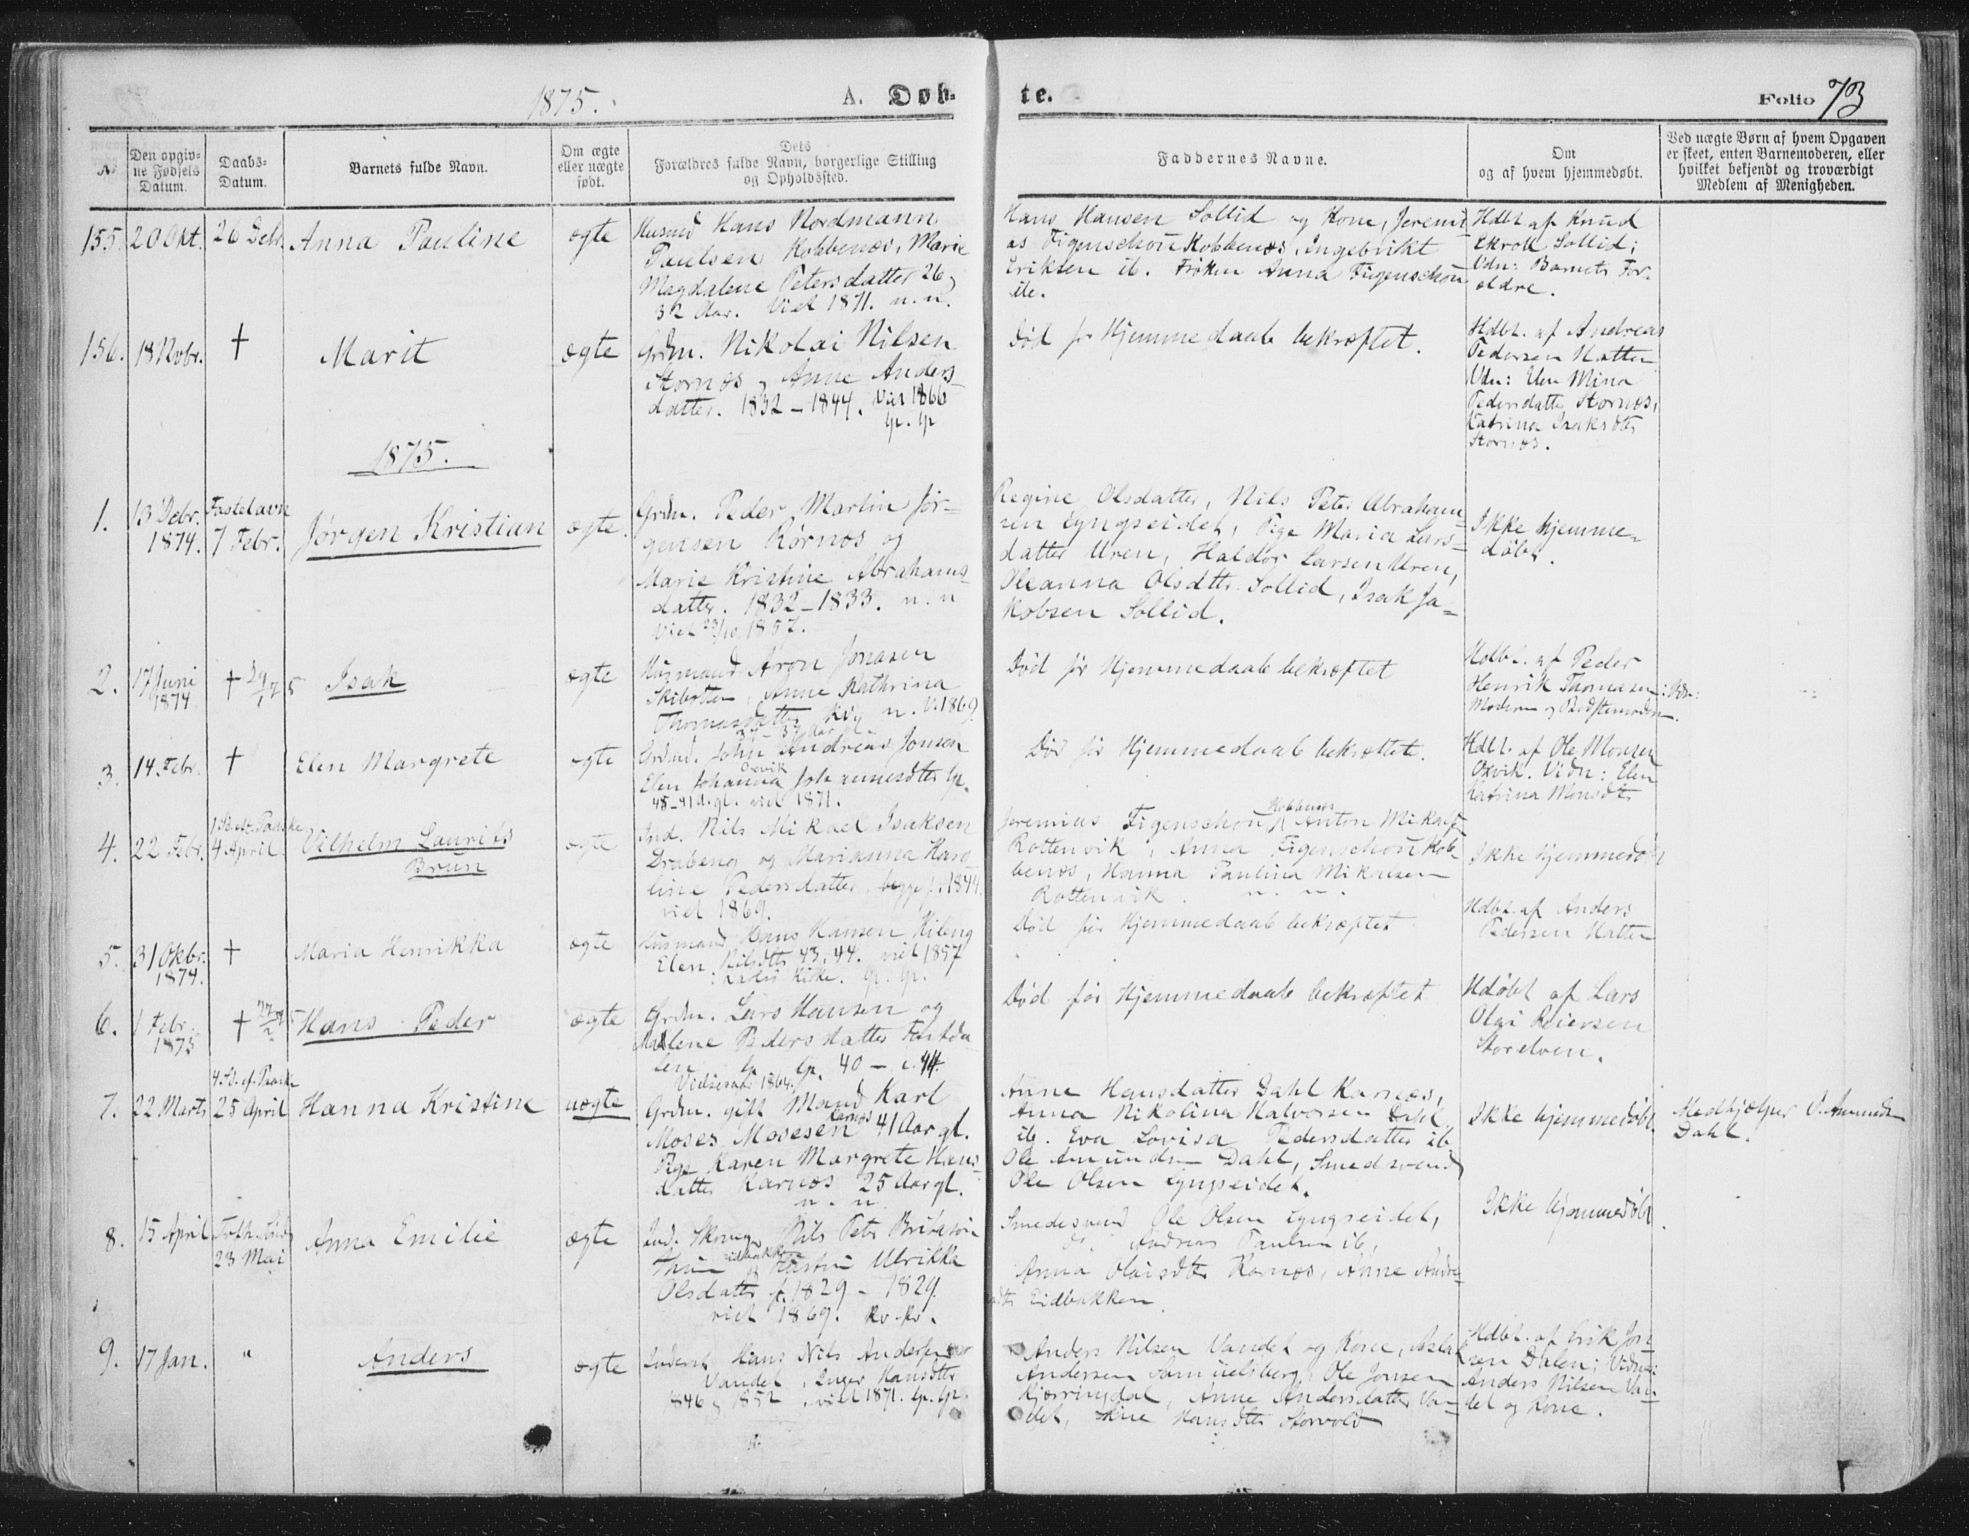 1875.
A. Døb-
te.
Folio 73
No
Den opgiv-
ne Fødsels
Datum.
Daabs-
Datum.
Barnets fulde Navn.
Om ægte
eller nægte
født.
Dets
Forældres fulde Navn, borgerlige Stilling
og Opholdssted.
Faddernes Navne.
Om
og af hvem hjemmedøbt.
Ved nægte Børn af hvem Opgaven
er skeet, enten Barnemoderen, eller
hvilket bekjendt og troværdigt
Medlem af Menigheden.
155. 20 Okt. 26 Debr. Anna Pauline ægte
Husmd Hans Nordmann
Paulsen Kobbenæs, Marie
Magdalene Petersdatter 26,
32 Aar. Viet 1871. n. n.
Hans Hansen Sollid og Kone, Jeremi-
as Figenschou Kobbenæs, Ingebrikt
Eriksen ib. Frøken Anna Figenschou
ib.
Hdbt. af Knud
Ekroll Sollid;
Vdn: Barnets For-
ældre.
156. 18 Novbr. † Marit ægte
Grdm. Nikolai Nilsen
Stornæs, Anne Anders-
datter. 1832 – 1844. Viet 1866
lp. lp
Død før Hjemmedaab bekræftet.
Hdbt. af Andreas
Pedersen Hatten
Vdn: Elen Mina
Pedersdatte Stornæs,
Katrina Isaksdtr
Stornæs.
1875.
1. 13 Debr. 1874. Fastelavn 7 Febr. Jørgen Kristian ægte.
Grdm. Peder Martin Jør-
gensen Rørnæs og
Marie Kristine Abrahams-
datter. 1832 – 1833. n. n
Viet 23/10 1857.
Regine Olsdatter, Nils Peter Abraham-
sen Lyngseidet, Pige Maria Lars-
datter Uren, Haldor Larsen Uren,
Oleanna Olsdtr. Sollid, Isak Ja-
kobsen Sollid.
Ikke hjemme-
døbt.
2. 17 Juni 1874 † 29/1 75 Isak ægte
Husmand Aron Jonasen
Skibotten, Anne Kathrina
Thomasdatter kv, n. V. 1869.
Død før Hjemmedaab bekræftet
Hdbt. af Peder
Henrik Thomasen: Vdn:
Moderen og Bedstemoderen.
3. 14 Febr. † Elen Margrete ægte
Grdmd. John Andreas Jonsen
Oxvik
Elen Johanna Johannesdtr lp.
45–41 A. gl. viet 1871.
Død før Hjemmedaab bekræftet.
Hdbt. af Ole Monsen
Oxvik. Vidn: Elen
Katrina Monsdtr
4. 22 Febr. 4 April Vilhelm Laurits
Brun ægte
Ind. Nils Mikael Isaksen
Drabeng og Marianna Karo
line Pedersdatter, begge f. 1844.
viet 1869.
Kobbenæs
Jeremias Figenschou, Anton Mikalsen
Rottenvik, Anna Figenschou Kob-
benæs, Hanna Paulina Mikalsen
Rottenvik. n. n.
Ikke hjemmedøbt
5. 31 Okbr. 1874. † Maria Henrikka ægte
Husmand Hans Hansen Kileng
Elen Nilsdtr 43, 44. viet 1857
lp. lp.
Død før Hjemmedaab bekræftet
Hdbt. af Anders
Pedersen Hatten
6. 1 Febr. 1875 † Hans Peder ægte
Grdm. Lars Hansen og
Malene Pedersdatter Furuda-
len lp. lp. 40 – c. 44.
1864.
Død før Hjemmedaab bekræftet
Hdøbt af Lars
Olai Reiersen
Storelven.
7. 22 Marts 4. Sd. ef. Paaske 25 April Hanna Kristine uægte
Grdm. gift Mand Karl
Moses Mosesen Karnæs 41 Aar gl.
Pige Karen Margrete Hans-
datter Karnæs 25 Aar gl.
n. n.
Anne Hansdatter Dahl Karnæs,
Anna Nikolina Halvorsen Dahl
ib. Eva Lovisa Pedersdatter ib
Ole Amundsen Dahl, Smedsvend
Ole Olsen Lyngseidet.
Ikke hjemmedøbt.
Medhjælper O. Amundsen
Dahl.
8. 15 April 23 Mai Anna Emilie ægte
Ind. Nils Peter
Eidbakken
Ulrikka
Olsdatter f. 1829 – 1829.
viet 1869. kv. kv.
Smedesvend Ole Olsen Lyngseidet,
Andreas Paulsen ib,
Anna Olaisdtr Karnæs, Anne
Eidbakken.
Ikke hjemmedøbt.
9. 17 Jan. " Anders ægte
Inderst Hans Nils Andersen
Vandet, Inger Hansdtr
1846, 1852, viet 1871. lp. lp.
Anders Nilsen Vandet og Kone, Aslak
Andersen Samuelsberg, Ole Jonsen
Kjærringdal, Anne Andersdatter Van-
det, Hansdtr Storvold
Hdbt. af Erik Jon-
sen Dalen; Vidne:
Anders Nilsen Van-
det og Kone.